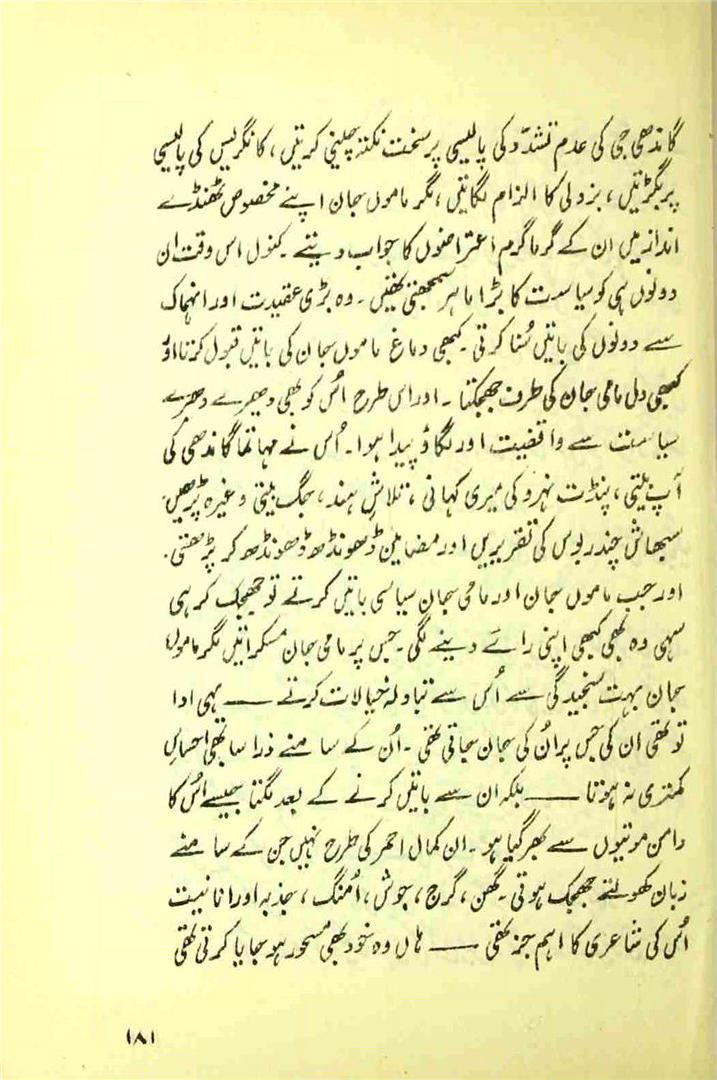 گاندھی جی کی عدم تشدّد کی پالیسی پر سخت نکتہ چینی کرتیں، کانگریس کی پالیسی
پر بگڑتیں، بزدلی کا الزام لگاتیں، مگر ماموں جان اپنے مخصوص ٹھنڈے
انداز میں ان کے گرما گرم اعتراضوں کا جواب دیتے۔ کنول اس وقت ان
دونوں ہی کو سیاست کا بڑا ماہر سمجھتی تھیں۔ وہ بڑی عقیدت اور انہماک
سے دونوں کی باتیں سُنا کرتی۔ کبھی دماغ ماموں جان کی باتیں قبول کرتا اور
کبھی دل مامی جان کی طرف جھکتا۔ اور اس طرح اُس کو بھی دھیرے دھیرے
سیاست سے واقفیت اور لگاؤ پیدا ہوا۔ اُس نے مہاتما گاندھی کی
آپ بیتی، پنڈت نہرو کی میری کہانی، تلاشِ ہند، جگ بیتی وغیرہ پڑھیں۔
سبھاش چندر بوس کی تقریریں اور مضامین ڈھونڈھ ڈھونڈھ کر پڑھتی۔
اور جب ماموں جان اور مامی جان سیاسی باتیں کرتے تو جھجک کر ہی
سہی وہ بھی کبھی اپنی رائے دینے لگی۔ جس پر مامی جان مسکراتیں مگر ماموں
جان بہت سنجیدگی سے اُس سے تبادلہ خیالات کرتے — یہی ادا
تو تھی ان کی جس پر اُن کی جان جاتی تھی۔ اُن کے سامنے ذرا سا بھی احساسِ
کمتری نہ ہوتا — بلکہ ان سے باتیں کرنے کے بعد لگتا جیسے اُس کا
دامن موتیوں سے بھر گیا ہو۔ ان کمال احمر کی طرح نہیں جن کے سامنے
زبان کھولتے جھجک ہوتی۔ گھن، گرج، جوش، اُمنگ، جذبہ اور انانیت
اُس کی شاعری کا اہم جز تھی — ہاں وہ خود بھی مسحور ہو جایا کرتی تھی
۱۸۱